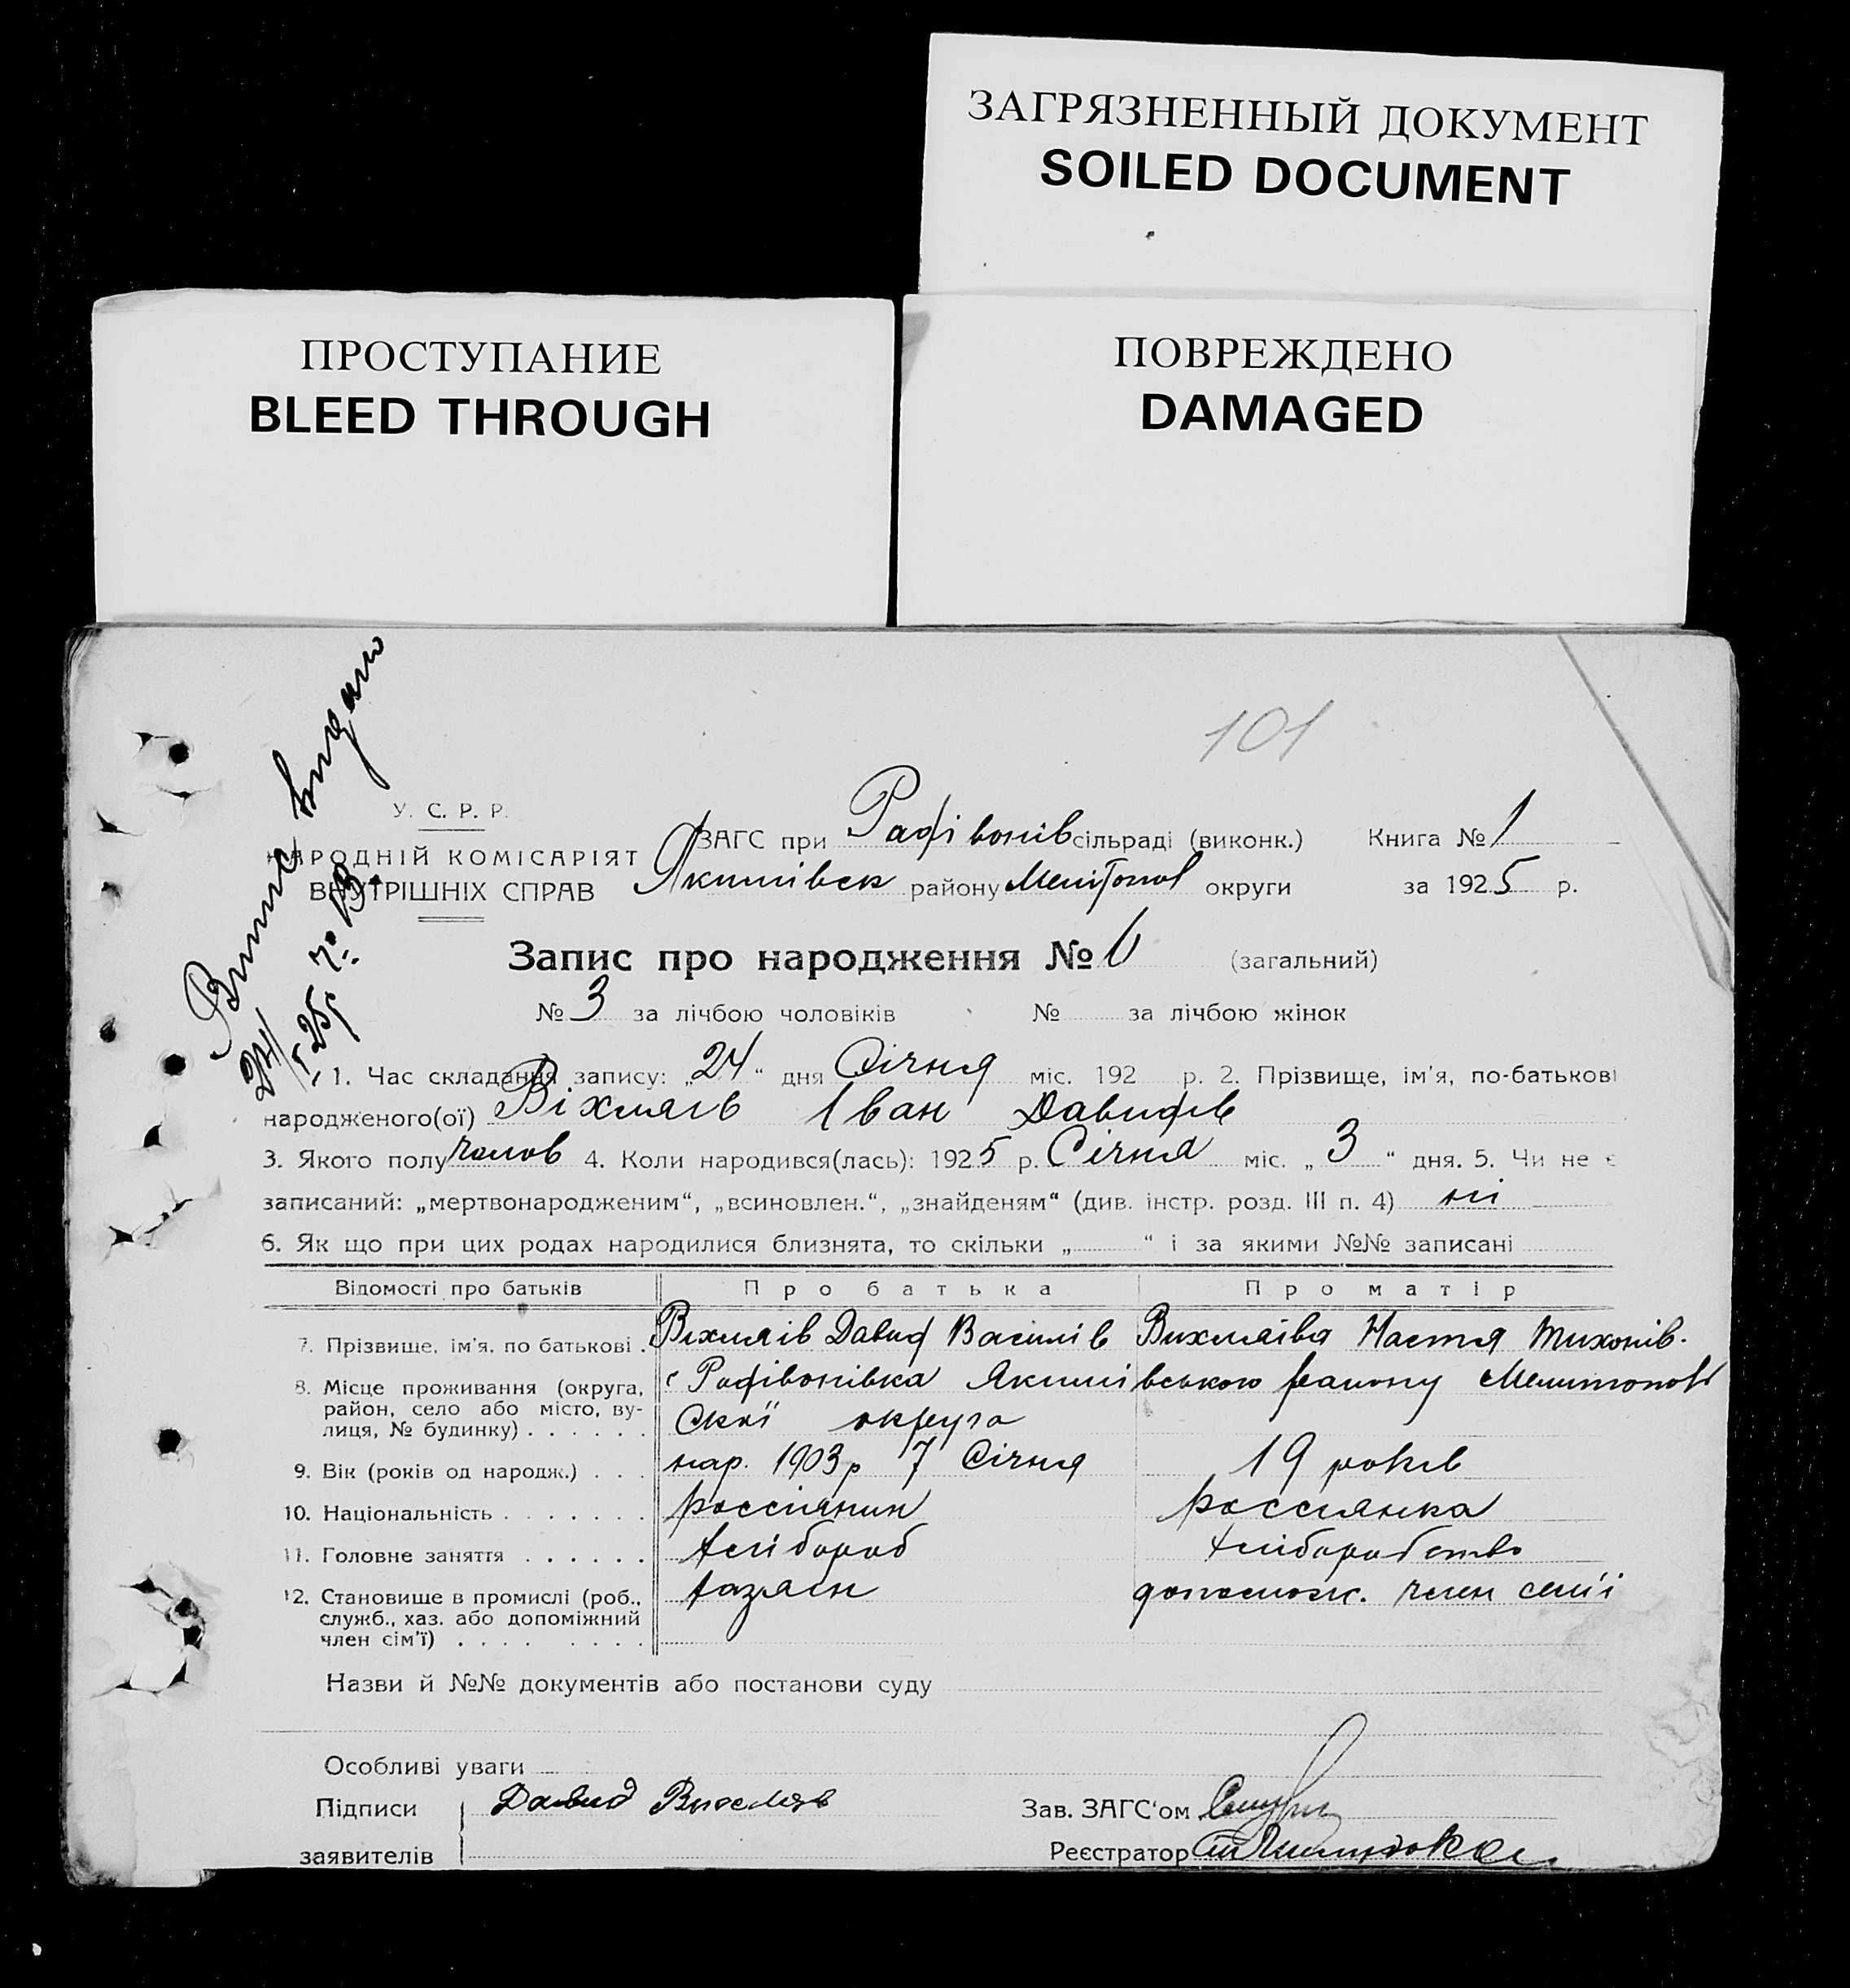 ЗАГРЯЗНЕННЫЙ ДОКУМЕНТ
SOILED DOCUMENT
ПРОСТУПАНИЕ
BLEED THROUGH
ПОВРЕЖДЕНО
DAMAGED
101
Випис видано
24/I 25р
У. С. Р. Р.
НАРОДНІЙ КОМІСАРІЯТ
ВНУТРІШНІХ СПРАВ
ЗАГС при Радівонів сільраді (виконк.) Книга № 1
Якимівськ району Мелітопол округи за 1925 р.
Запис про народження № 6 (загальний)
№ 3 за лічбою чоловіків № за лічбою жінок
1. Час складання запису: „24“ дня Січня міс. 192 р. 2. Прізвище, ім'я, по-батькові
народженого(ої) Віхляїв Іван Давидів
3. Якого полу чолов 4. Коли народився(лась): 1925 р. Січня міс. „3“ дня. 5. Чи не є
записаний: „мертвонародженим“, „всиновлен.“, „знайденям“ (див. інстр. розд. III п. 4) ні
6. Як що при цих родах народилися близнята, то скільки „ “ і за якими №№ записані
Відомості про батьків Про батька Про матір
7. Прізвище, ім'я, по батькові . Віхляїв Давид Василів Вихляїва Настя Тихонів.
8. Місце проживання (округа, район, село або місто, вулиця, № будинку) . . . . . . с Радівонівка Якимівського району Мелитополь
скої округа
9. Вік (років од народж.) . . . нар. 1903р 7 Січня 19 років
10. Національність . . . . . . . россіянин россіянка
11. Головне заняття . . . . . . хлібороб хліборобство
12. Становище в промислі (роб., служб., хаз. або допоміжний член сім'ї) . . . . . . . . хазяїн допомож. член сем'ї
Назви й №№ документів або постанови суду
Особливі уваги
Підписи Давид Вихляев Зав. ЗАГС'ом
заявителів Реєстратор